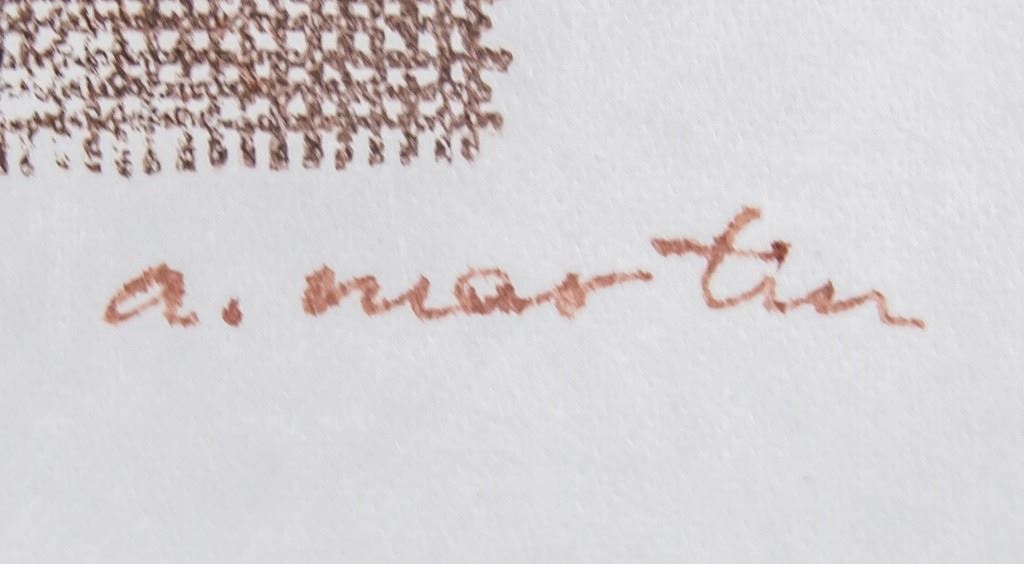 a. martin